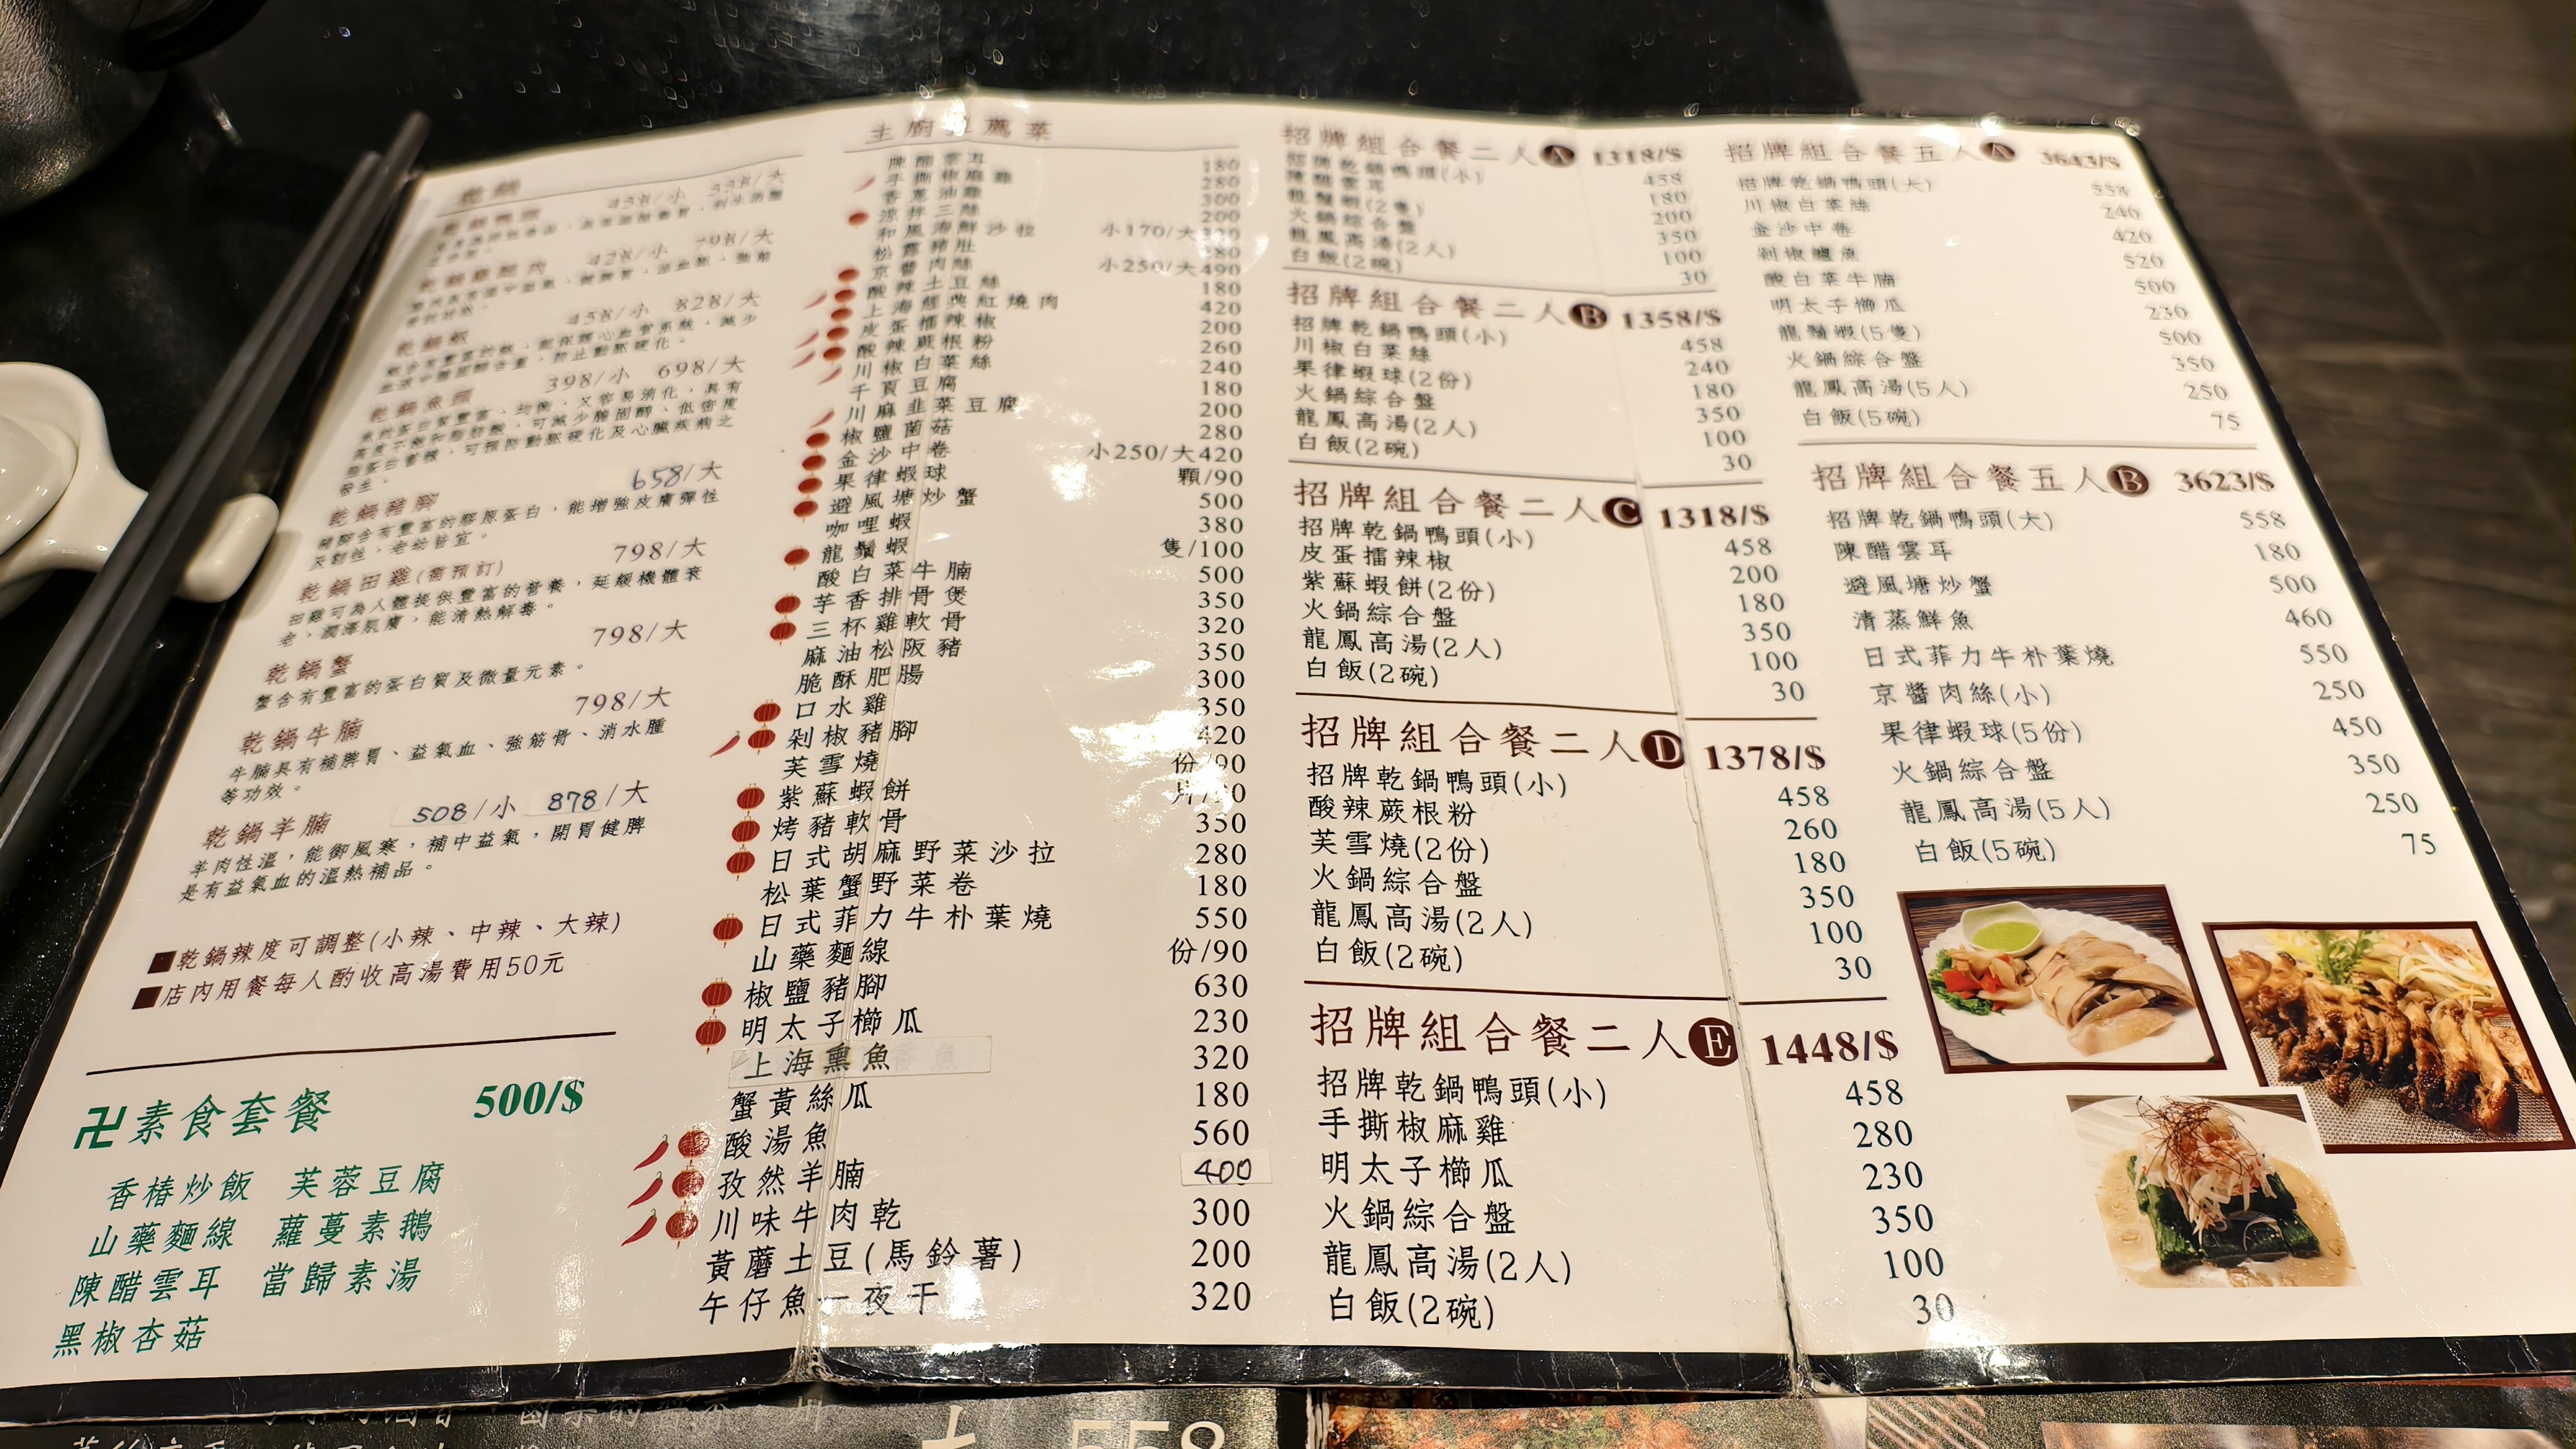 乾鍋
458/小 558/大
428/小 798/大
458/小 828/大
乾鍋蝦
398/小 698/大
乾鍋魚頭
658/大
乾鍋豬腳
豬腳含有豐富的膠原蛋白，能增強皮膚彈性
及韌性，老幼皆宜。
798/大
乾鍋田雞(需預訂)
田雞可為人體提供豐富的營養，延緩機體衰
老，潤澤肌膚，能清熱解毒。
798/大
乾鍋蟹
蟹含有豐富的蛋白質及微量元素。
798/大
乾鍋牛腩
牛腩具有補脾胃、益氣血、強筋骨、消水腫
等功效。
乾鍋羊腩 508/小 878/大
羊肉性溫，能御風寒，補中益氣，開胃健脾
是有益氣血的溫熱補品。
■乾鍋辣度可調整(小辣、中辣、大辣)
■店內用餐每人酌收高湯費用50元
卍素食套餐 500/$
香椿炒飯 芙蓉豆腐
山藥麵線 蘿蔓素鵝
陳醋雲耳 當歸素湯
黑椒杏菇
主廚推薦菜
陳醋雲耳 180
手撕椒麻雞 280
香蔥油雞 300
涼拌三絲 200
和風海鮮沙拉 小170/大320
松露豬肚 280
京醬肉絲 小250/大490
酸辣土豆絲 180
上海經典紅燒肉 420
皮蛋擂辣椒 200
酸辣蕨根粉 260
川椒白菜絲 240
千頁豆腐 180
川麻韭菜豆腐 200
椒鹽菌菇 280
金沙中卷 小250/大420
果律蝦球 顆/90
避風塘炒蟹 500
咖哩蝦 380
龍鬚蝦 隻/100
酸白菜牛腩 500
芋香排骨煲 350
三杯雞軟骨 320
麻油松阪豬 350
脆酥肥腸 300
口水雞 350
剁椒豬腳 420
芙雪燒 份/90
紫蘇蝦餅 片/90
烤豬軟骨 350
日式胡麻野菜沙拉 280
松葉蟹野菜卷 180
日式菲力牛朴葉燒 550
山藥麵線 份/90
椒鹽豬腳 630
明太子櫛瓜 230
上海熏魚 320
蟹黃絲瓜 180
酸湯魚 560
孜然羊腩 400
川味牛肉乾 300
黃蘑土豆(馬鈴薯) 200
午仔魚一夜干 320
招牌組合餐二人A 1318/$
招牌乾鍋鴨頭(小) 458
陳醋雲耳 180
龍鬚蝦(2隻) 200
火鍋綜合盤 350
龍鳳高湯(2人) 100
白飯(2碗) 30
招牌組合餐二人B 1358/$
招牌乾鍋鴨頭(小) 458
川椒白菜絲 240
果律蝦球(2份) 180
火鍋綜合盤 350
龍鳳高湯(2人) 100
白飯(2碗) 30
招牌組合餐二人C 1318/$
招牌乾鍋鴨頭(小) 458
皮蛋擂辣椒 200
紫蘇蝦餅(2份) 180
火鍋綜合盤 350
龍鳳高湯(2人) 100
白飯(2碗) 30
招牌組合餐二人D 1378/$
招牌乾鍋鴨頭(小) 458
酸辣蕨根粉 260
芙雪燒(2份) 180
火鍋綜合盤 350
龍鳳高湯(2人) 100
白飯(2碗) 30
招牌組合餐二人E 1448/$
招牌乾鍋鴨頭(小) 458
手撕椒麻雞 280
明太子櫛瓜 230
火鍋綜合盤 350
龍鳳高湯(2人) 100
白飯(2碗) 30
招牌組合餐五人A 3643/$
招牌乾鍋鴨頭(大) 558
川椒白菜絲 240
金沙中卷 420
剁椒鱸魚 520
酸白菜牛腩 500
明太子櫛瓜 230
龍鬚蝦(5隻) 500
火鍋綜合盤 350
龍鳳高湯(5人) 250
白飯(5碗) 75
招牌組合餐五人B 3623/$
招牌乾鍋鴨頭(大) 558
陳醋雲耳 180
避風塘炒蟹 500
清蒸鮮魚 460
日式菲力牛朴葉燒 550
京醬肉絲(小) 250
果律蝦球(5份) 450
火鍋綜合盤 350
龍鳳高湯(5人) 250
白飯(5碗) 75
558